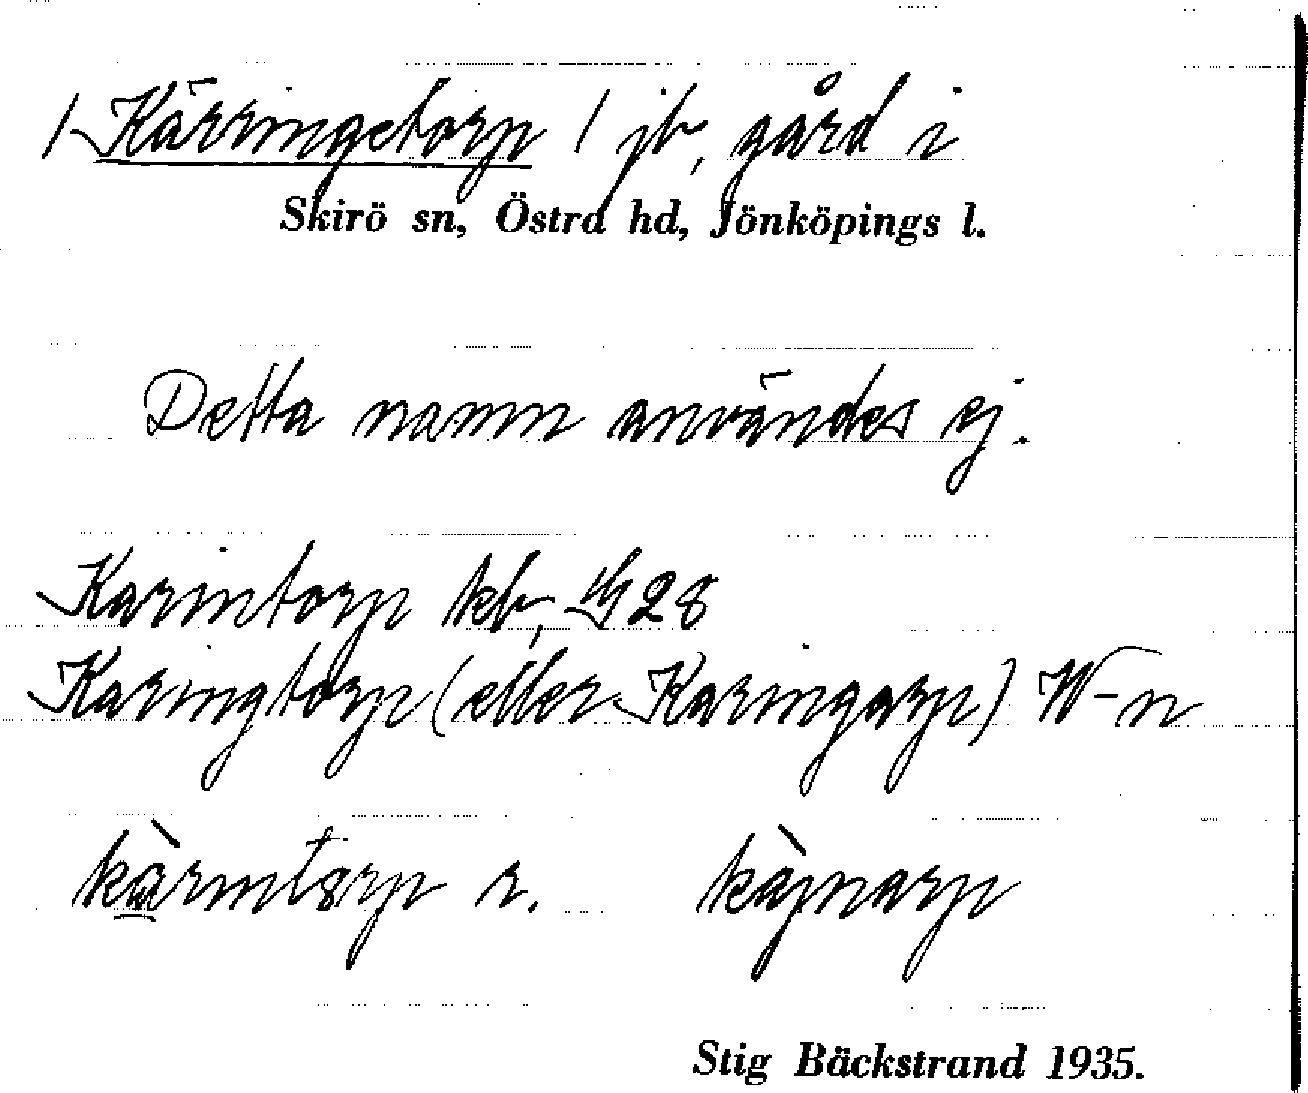 / Kärringetorp / jb, gård i
Skirö sn, Östra hd, Jönköpings l.
Detta namn användes ej.
Karintorp kb, 28
Karingtorp (eller Karingarp) W-n
r.
Stig Bäckstrand 1935.